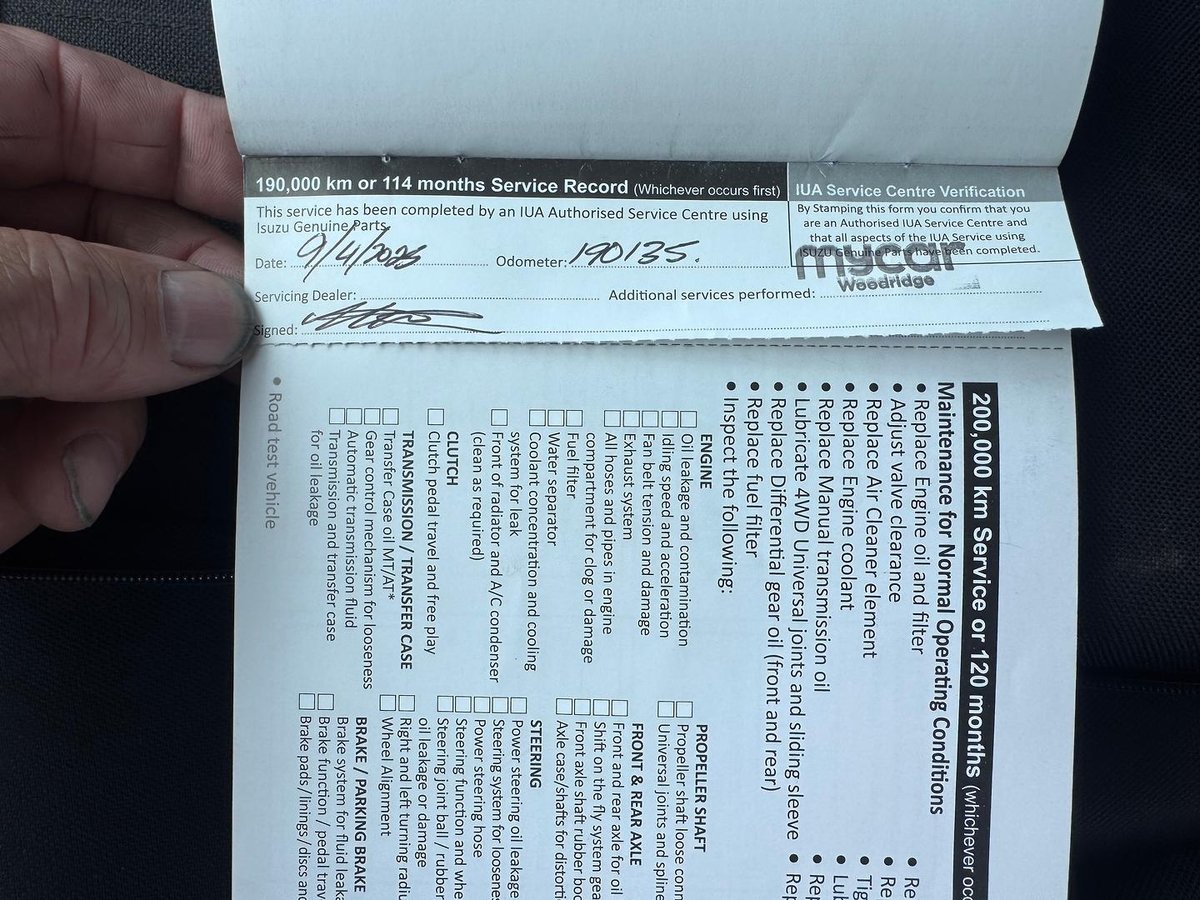 190,000 km or 114 months Service Record (Whichever occurs first)
This service has been completed by an IUA Authorised Service Centre using
Isuzu Genuine Parts
Date: 9/4/2025
Odometer: 190135.
Servicing Dealer:
Additional services performed:
Signed:
IUA Service Centre Verification
By Stamping this form you confirm that you
are an Authorised IUA Service Centre and
that all aspects of the IUA Service using
ISUZU Genuine Parts have been completed.
mycar
Woodridge
200,000 km Service or 120 months (whichever occ
Maintenance for Normal Operating Conditions
• Replace Engine oil and filter
• Adjust valve clearance
• Replace Air Cleaner element
• Replace Engine coolant
• Replace Manual transmission oil
• Lubricate 4WD Universal joints and sliding sleeve
• Replace Differential gear oil (front and rear)
• Replace fuel filter
• Inspect the following:
• Re
• Re
• Tig
• Lub
• Rep
• Rep
ENGINE
Oil leakage and contamination
Idling speed and acceleration
Fan belt tension and damage
Exhaust system
All hoses and pipes in engine
compartment for clog or damage
Fuel filter
Water separator
Coolant concentration and cooling
system for leak
Front of radiator and A/C condenser
(clean as required)
CLUTCH
Clutch pedal travel and free play
TRANSMISSION / TRANSFER CASE
Transfer Case oil MT/AT*
Gear control mechanism for looseness
Automatic transmission fluid
Transmission and transfer case
for oil leakage
• Road test vehicle
PROPELLER SHAFT
Propeller shaft loose conn
Universal joints and spline
FRONT & REAR AXLE
Front and rear axle for oil
Shift on the fly system gea
Front axle shaft rubber boo
Axle case/shafts for distorti
STEERING
Power steering oil leakage
Steering system for loosenes
Power steering hose
Steering function and whe
Steering joint ball / rubber
oil leakage or damage
Right and left turning radiu
Wheel Alignment
BRAKE / PARKING BRAKE
Brake system for fluid leaka
Brake function / pedal trav
Brake pads/linings/discs and